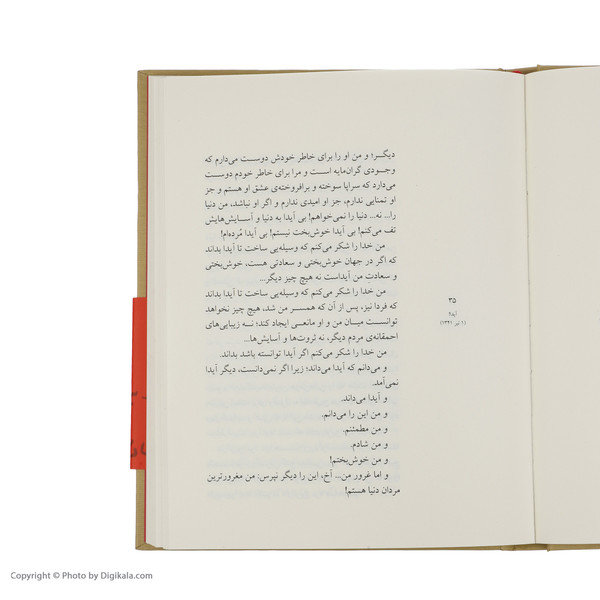 دیگر؛ و من او را برای خاطر خودش دوست می‌دارم که
وجودی گران‌مایه است و مرا برای خاطر خودم دوست
می‌دارد که سراپا سوخته و برافروخته‌ی عشق او هستم و جز
او تمنایی ندارم، جز او امیدی ندارم و اگر او نباشد، من دنیا
را... نه... دنیا را نمی‌خواهم! بی آیدا به دنیا و آسایش‌هایش
تف می‌کنم! بی آیدا خوش‌بخت نیستم! بی آیدا مُرده‌ام!
من خدا را شکر می‌کنم که وسیله‌یی ساخت تا آیدا بداند
که اگر در جهان خوش‌بختی و سعادتی هست، خوش‌بختی
و سعادتِ من آیداست نه هیچ چیز دیگر...
من خدا را شکر می‌کنم که وسیله‌یی ساخت تا آیدا بداند
که فردا نیز، پس از آن که همسر من شد، هیچ چیز نخواهد
توانست میان من و او مانعی ایجاد کند؛ نه زیبایی‌های
احمقانه‌ی مردم دیگر، نه ثروت‌ها و آسایش‌ها...
من خدا را شکر می‌کنم اگر آیدا توانسته باشد بداند.
و می‌دانم که آیدا می‌داند؛ زیرا اگر نمی‌دانست، دیگر آیدا
نمی‌آمد.
و آیدا می‌داند.
و من این را می‌دانم.
و من مطمئنم.
و من شادم.
و من خوش‌بختم!
و اما غرور من... آخ، این را دیگر نپرس: من مغرورترین
مردان دنیا هستم!
۳۵
آیدا
(۱ تیر ۱۳۴۱)
Copyright © Photo by Digikala.com